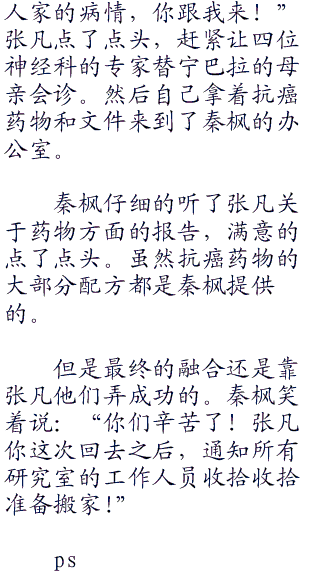 人家的病情，你跟我来！”
张凡点了点头，赶紧让四位
神经科的专家替宁巴拉的母
亲会诊。然后自己拿着抗癌
药物和文件来到了秦枫的办
公室。
秦枫仔细的听了张凡关
于药物方面的报告，满意的
点了点头。虽然抗癌药物的
大部分配方都是秦枫提供
的。
但是最终的融合还是靠
张凡他们弄成功的。秦枫笑
着说：“你们辛苦了！张凡
你这次回去之后，通知所有
研究室的工作人员收拾收拾
准备搬家！”
ps